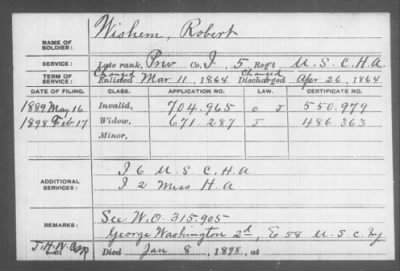 NAME OF SOLDIER: Wishem, Robert
SERVICE: Late rank, Priv Co. I, 5 Reg't U.S.C.H.A.
TERM OF SERVICE: Changed Enlisted Mar 11, 1864 Changed Discharged Apr 26, 1864
DATE OF FILING. CLASS. APPLICATION NO. LAW. CERTIFICATE NO.
1889 May 16 Invalid, 704.965 J 550.979
1898 Feb 17 Widow, 671.287 J 486.363
Minor,
ADDITIONAL SERVICES: I 6 U.S.C.H.A
I 2 Miss H.A
REMARKS: See W.O. 315.905
George Washington 2d, E 58 U.S.C. Inf
Died Jan 8, 1898, at